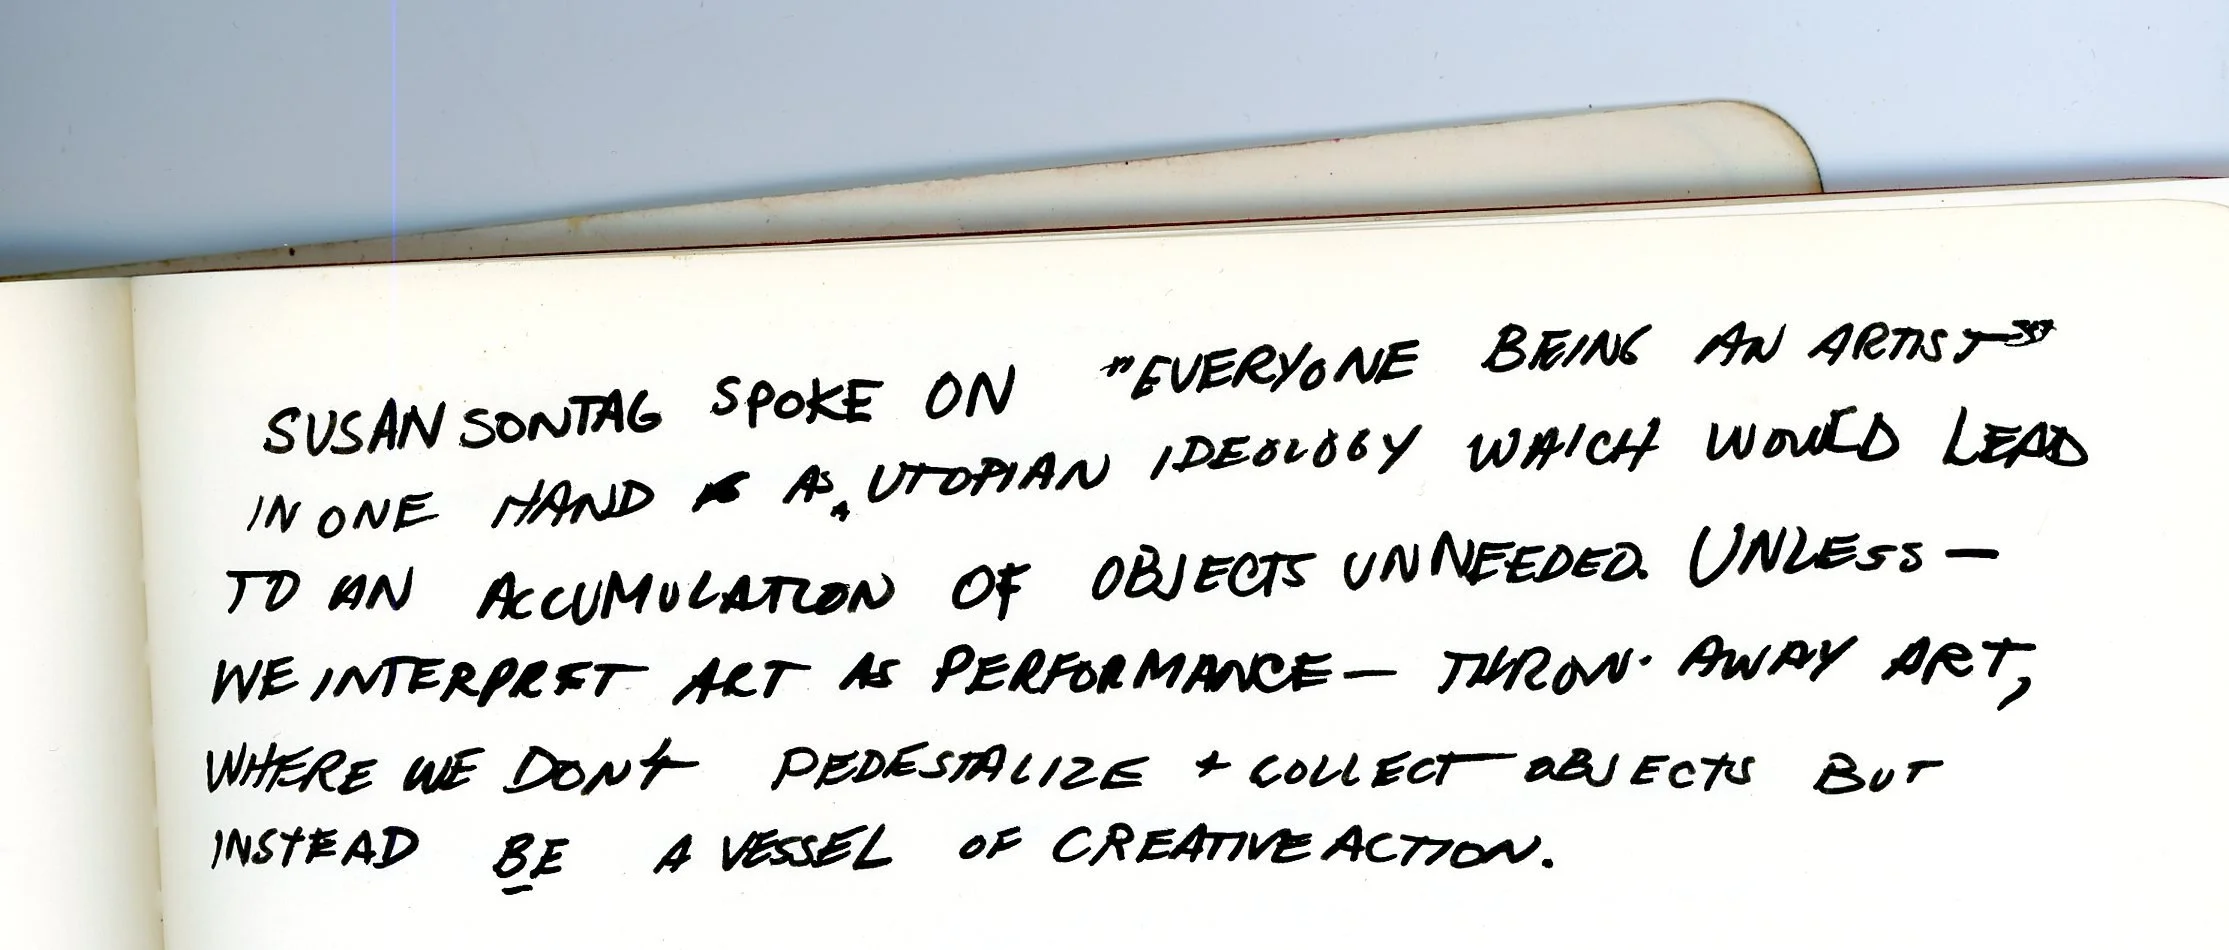 SUSAN SONTAG SPOKE ON "EVERYONE BEING AN ARTIST"
IN ONE HAND AS A UTOPIAN IDEOLOGY WHICH WOULD LEAD
TO AN ACCUMULATION OF OBJECTS UNNEEDED. UNLESS —
WE INTERPRET ART AS PERFORMANCE — THROW· AWAY ART,
WHERE WE DONT PEDESTALIZE + COLLECT OBJECTS BUT
INSTEAD BE A VESSEL OF CREATIVE ACTION.